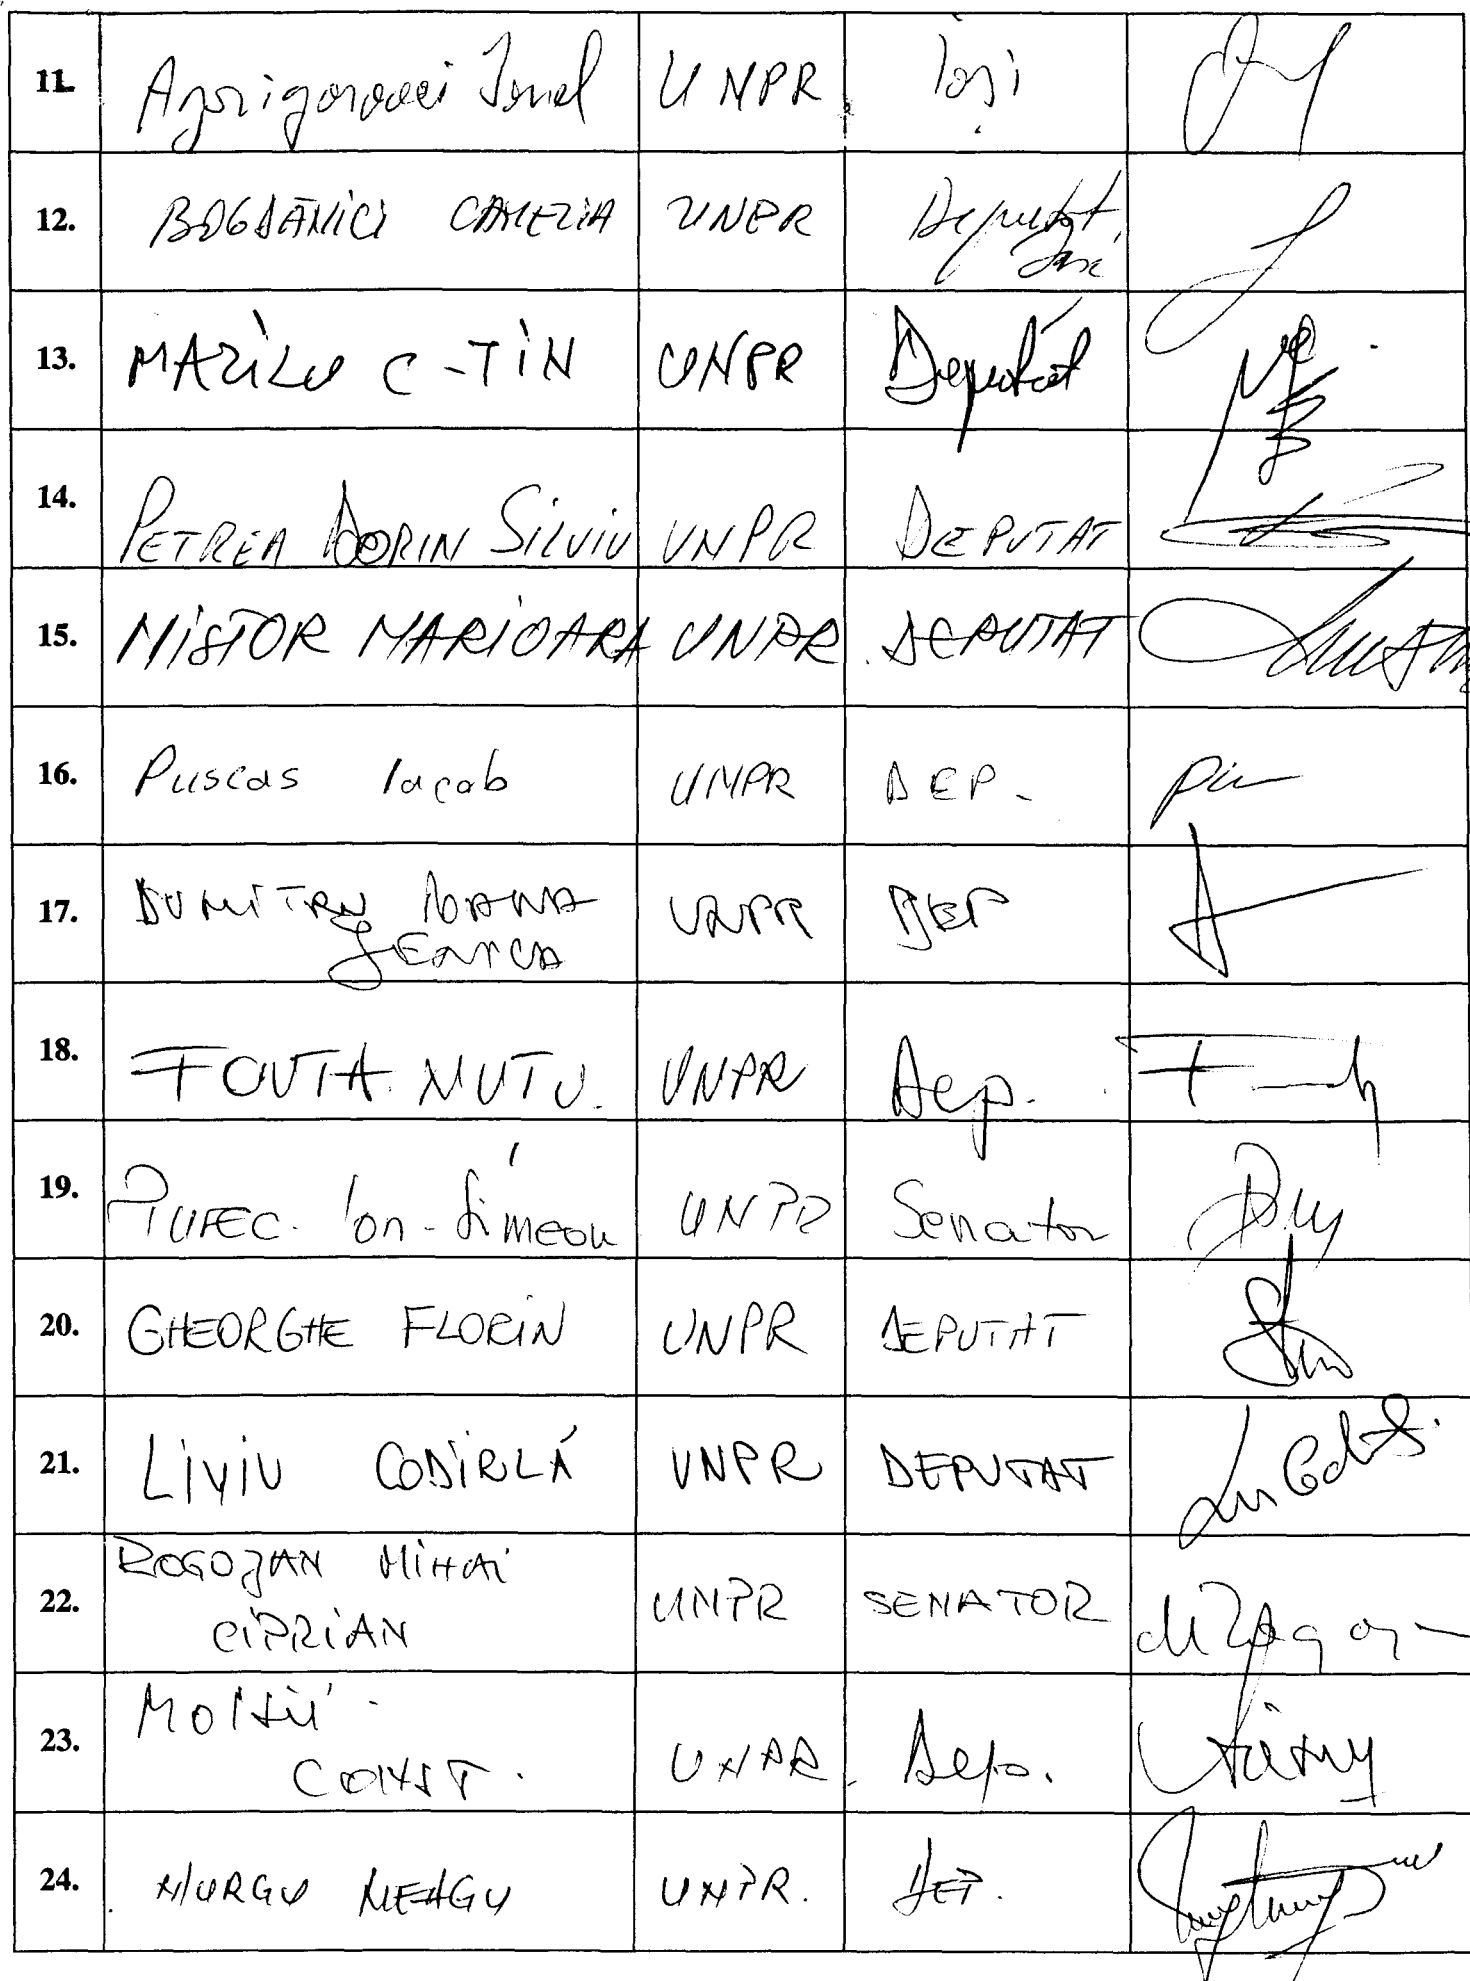 11. Agrigoroaei Ionel UNPR Iași
12. BOGDĂNICI CAMELIA UNPR Deputat Iași
13. MAZILU C-TIN UNPR Deputat
14. PETREA DORIN SILVIU UNPR DEPUTAT
15. NISTOR MARIOARA UNPR DEPUTAT
16. Puscas Iacob UNPR DEP.
17. DUMITRU UNPR DEP
18. FOUTA NUTU. UNPR Dep.
19. Ion-Simeon UNPR Senator
20. GHEORGHE FLORIN UNPR DEPUTAT
21. LIVIU CODÎRLĂ UNPR DEPUTAT
22. ROGOJAN MIHAI
CIPRIAN UNPR SENATOR
23. MOISII
CONST. UNPR. Dep.
24. MURGU NEAGU UNPR. DEP.